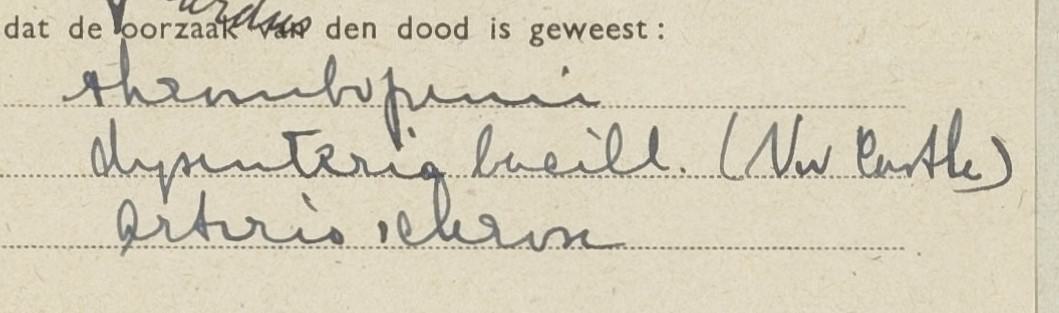 dat de oorzaak van den dood is geweest:
thrombopenie
dysenteria bacill. (New Castle)
Arterio sclerose